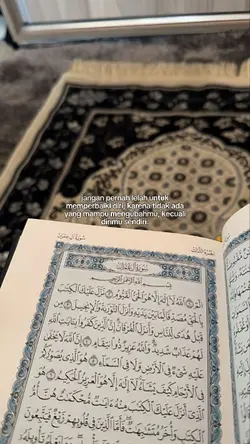 jangan pernah lelah untuk
memperbaiki diri, karena tidak ada
yang mampu mengubahmu, kecuali
dirimu sendiri.
الجزء الثالث
سورة آل عمران
سُورَةُ آلِ عِمْرَانَ
بِسْمِ ٱللَّهِ ٱلرَّحْمَٰنِ ٱلرَّحِيمِ
الٓمٓ ١ ٱللَّهُ لَآ إِلَٰهَ إِلَّا هُوَ ٱلْحَىُّ ٱلْقَيُّومُ ٢ نَزَّلَ عَلَيْكَ ٱلْكِتَٰبَ
بِٱلْحَقِّ مُصَدِّقًا لِّمَا بَيْنَ يَدَيْهِ وَأَنزَلَ ٱلتَّوْرَىٰةَ وَٱلْإِنجِيلَ ٣ مِن
قَبْلُ هُدًى لِّلنَّاسِ وَأَنزَلَ ٱلْفُرْقَانَ إِنَّ ٱلَّذِينَ كَفَرُوا۟ بِـَٔايَٰتِ ٱللَّهِ
لَهُمْ عَذَابٌ شَدِيدٌ وَٱللَّهُ عَزِيزٌ ذُو ٱنتِقَامٍ ٤ إِنَّ ٱللَّهَ لَا يَخْفَىٰ
عَلَيْهِ شَىْءٌ فِى ٱلْأَرْضِ وَلَا فِى ٱلسَّمَآءِ ٥ هُوَ ٱلَّذِى يُصَوِّرُكُمْ
فِى ٱلْأَرْحَامِ كَيْفَ يَشَآءُ لَآ إِلَٰهَ إِلَّا هُوَ ٱلْعَزِيزُ ٱلْحَكِيمُ ٦ هُوَ
ٱلَّذِىٓ أَنزَلَ عَلَيْكَ ٱلْكِتَٰبَ مِنْهُ ءَايَٰتٌ مُّحْكَمَٰتٌ هُنَّ أُمُّ
ٱلْكِتَٰبِ وَأُخَرُ مُتَشَٰبِهَٰتٌ فَأَمَّا ٱلَّذِينَ فِى قُلُوبِهِمْ زَيْغٌ فَيَتَّبِعُونَ